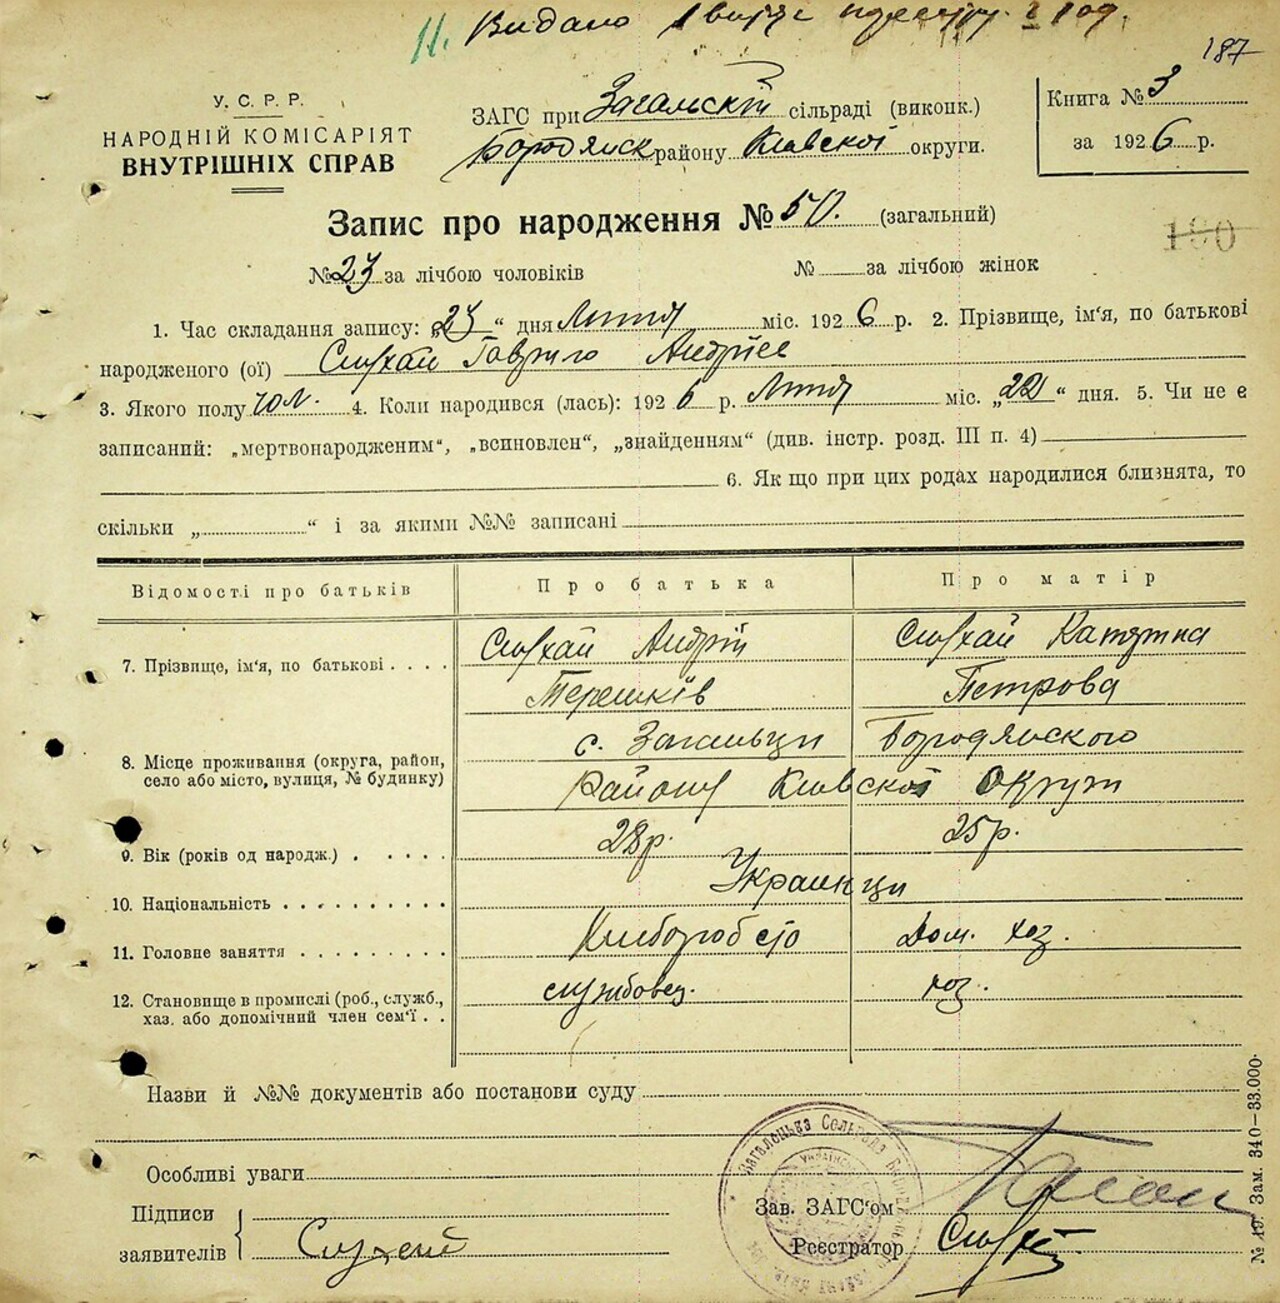 11. Видано
187
У. С. Р. Р.
НАРОДНІЙ КОМІСАРІЯТ
ВНУТРІШНІХ СПРАВ
ЗАГС при Загальскій сільраді (виконк.)
Бородянск району Київскої округи.
Книга № 3
за 1926 р.
Запис про народження № 50. (загальний)
190
№ 23 за лічбою чоловіків № за лічбою жінок
1. Час складання запису: „23“ дня Лютня міс. 1926 р. 2. Прізвище, ім‘я, по батькові
народженого (ої) Слухай Гаврило Андріїв
3. Якого полу чол. 4. Коли народився (лась): 1926 р. Лютня міс. „22“ дня. 5. Чи не є
записаний: „мертвонародженим“, „всиновлен“, „знайденням“ (див. інстр. розд. III п. 4)
6. Як що при цих родах народилися близнята, то
скільки „ “ і за якими №№ записані
Відомості про батьків Про батька Про матір
7. Прізвище, ім‘я, по батькові . . . . Слухай Андрій Слухай Катерина
Терешків Петрова
8. Місце проживання (округа, район, село або місто, вулиця, № будинку) с. Загальці Бородянского
Району Київскої Округи
9. Вік (років од народж.) . . . . . 28р. 25р.
10. Національність . . . . . . . . . . Украинци
11. Головне заняття . . . . . . . . . Хлібороб ство Дом. хоз.
12. Становище в промислі (роб., служб., хаз. або допомічний член сем‘ї . . службовец. хоз.
Назви й №№ документів або постанови суду
Особливі уваги
Підписи
заявителів Слухай
Зав. ЗАГС‘ом
Реєстратор Слухай
№ 19. Зам. 340—33.000.